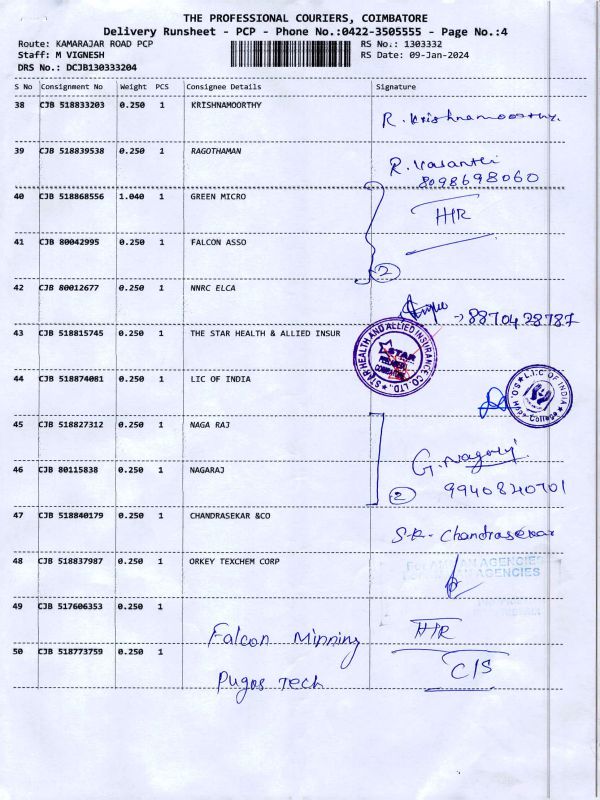 THE PROFESSIONAL COURIERS, COIMBATORE
Delivery Runsheet - PCP - Phone No.:0422-3505555 - Page No.:4
Route: KAMARAJAR ROAD PCP RS No.: 1303332
Staff: M VIGNESH RS Date: 09-Jan-2024
DRS No.: DCJB130333204
S No Consignment No Weight PCS Consignee Details Signature
38 CJB 518833203 0.250 1 KRISHNAMOORTHY R. Krishnamoorthy.
39 CJB 518839538 0.250 1 RAGOTHAMAN R. Vasanthi
8098698060
40 CJB 518868556 1.040 1 GREEN MICRO H/R
41 CJB 80042995 0.250 1 FALCON ASSO
2
42 CJB 80012677 0.250 1 NNRC ELCA
→8870428787
43 CJB 518815745 0.250 1 THE STAR HEALTH & ALLIED INSUR
STAR HEALTH AND ALLIED INSURANCE CO. LTD.
STAR
COIMBATORE
44 CJB 518874081 0.250 1 LIC OF INDIA
L.I.C OF INDIA
College
45 CJB 518827312 0.250 1 NAGA RAJ
G. Nagaraj
46 CJB 80115838 0.250 1 NAGARAJ
2 9940840701
47 CJB 518840179 0.250 1 CHANDRASEKAR &CO S.R. Chandrasekar
48 CJB 518837987 0.250 1 ORKEY TEXCHEM CORP
AGENCIES
AGENCIES
49 CJB 517606353 0.250 1
Falcon Minning H/R
50 CJB 518773759 0.250 1
Pugos Tech C/S